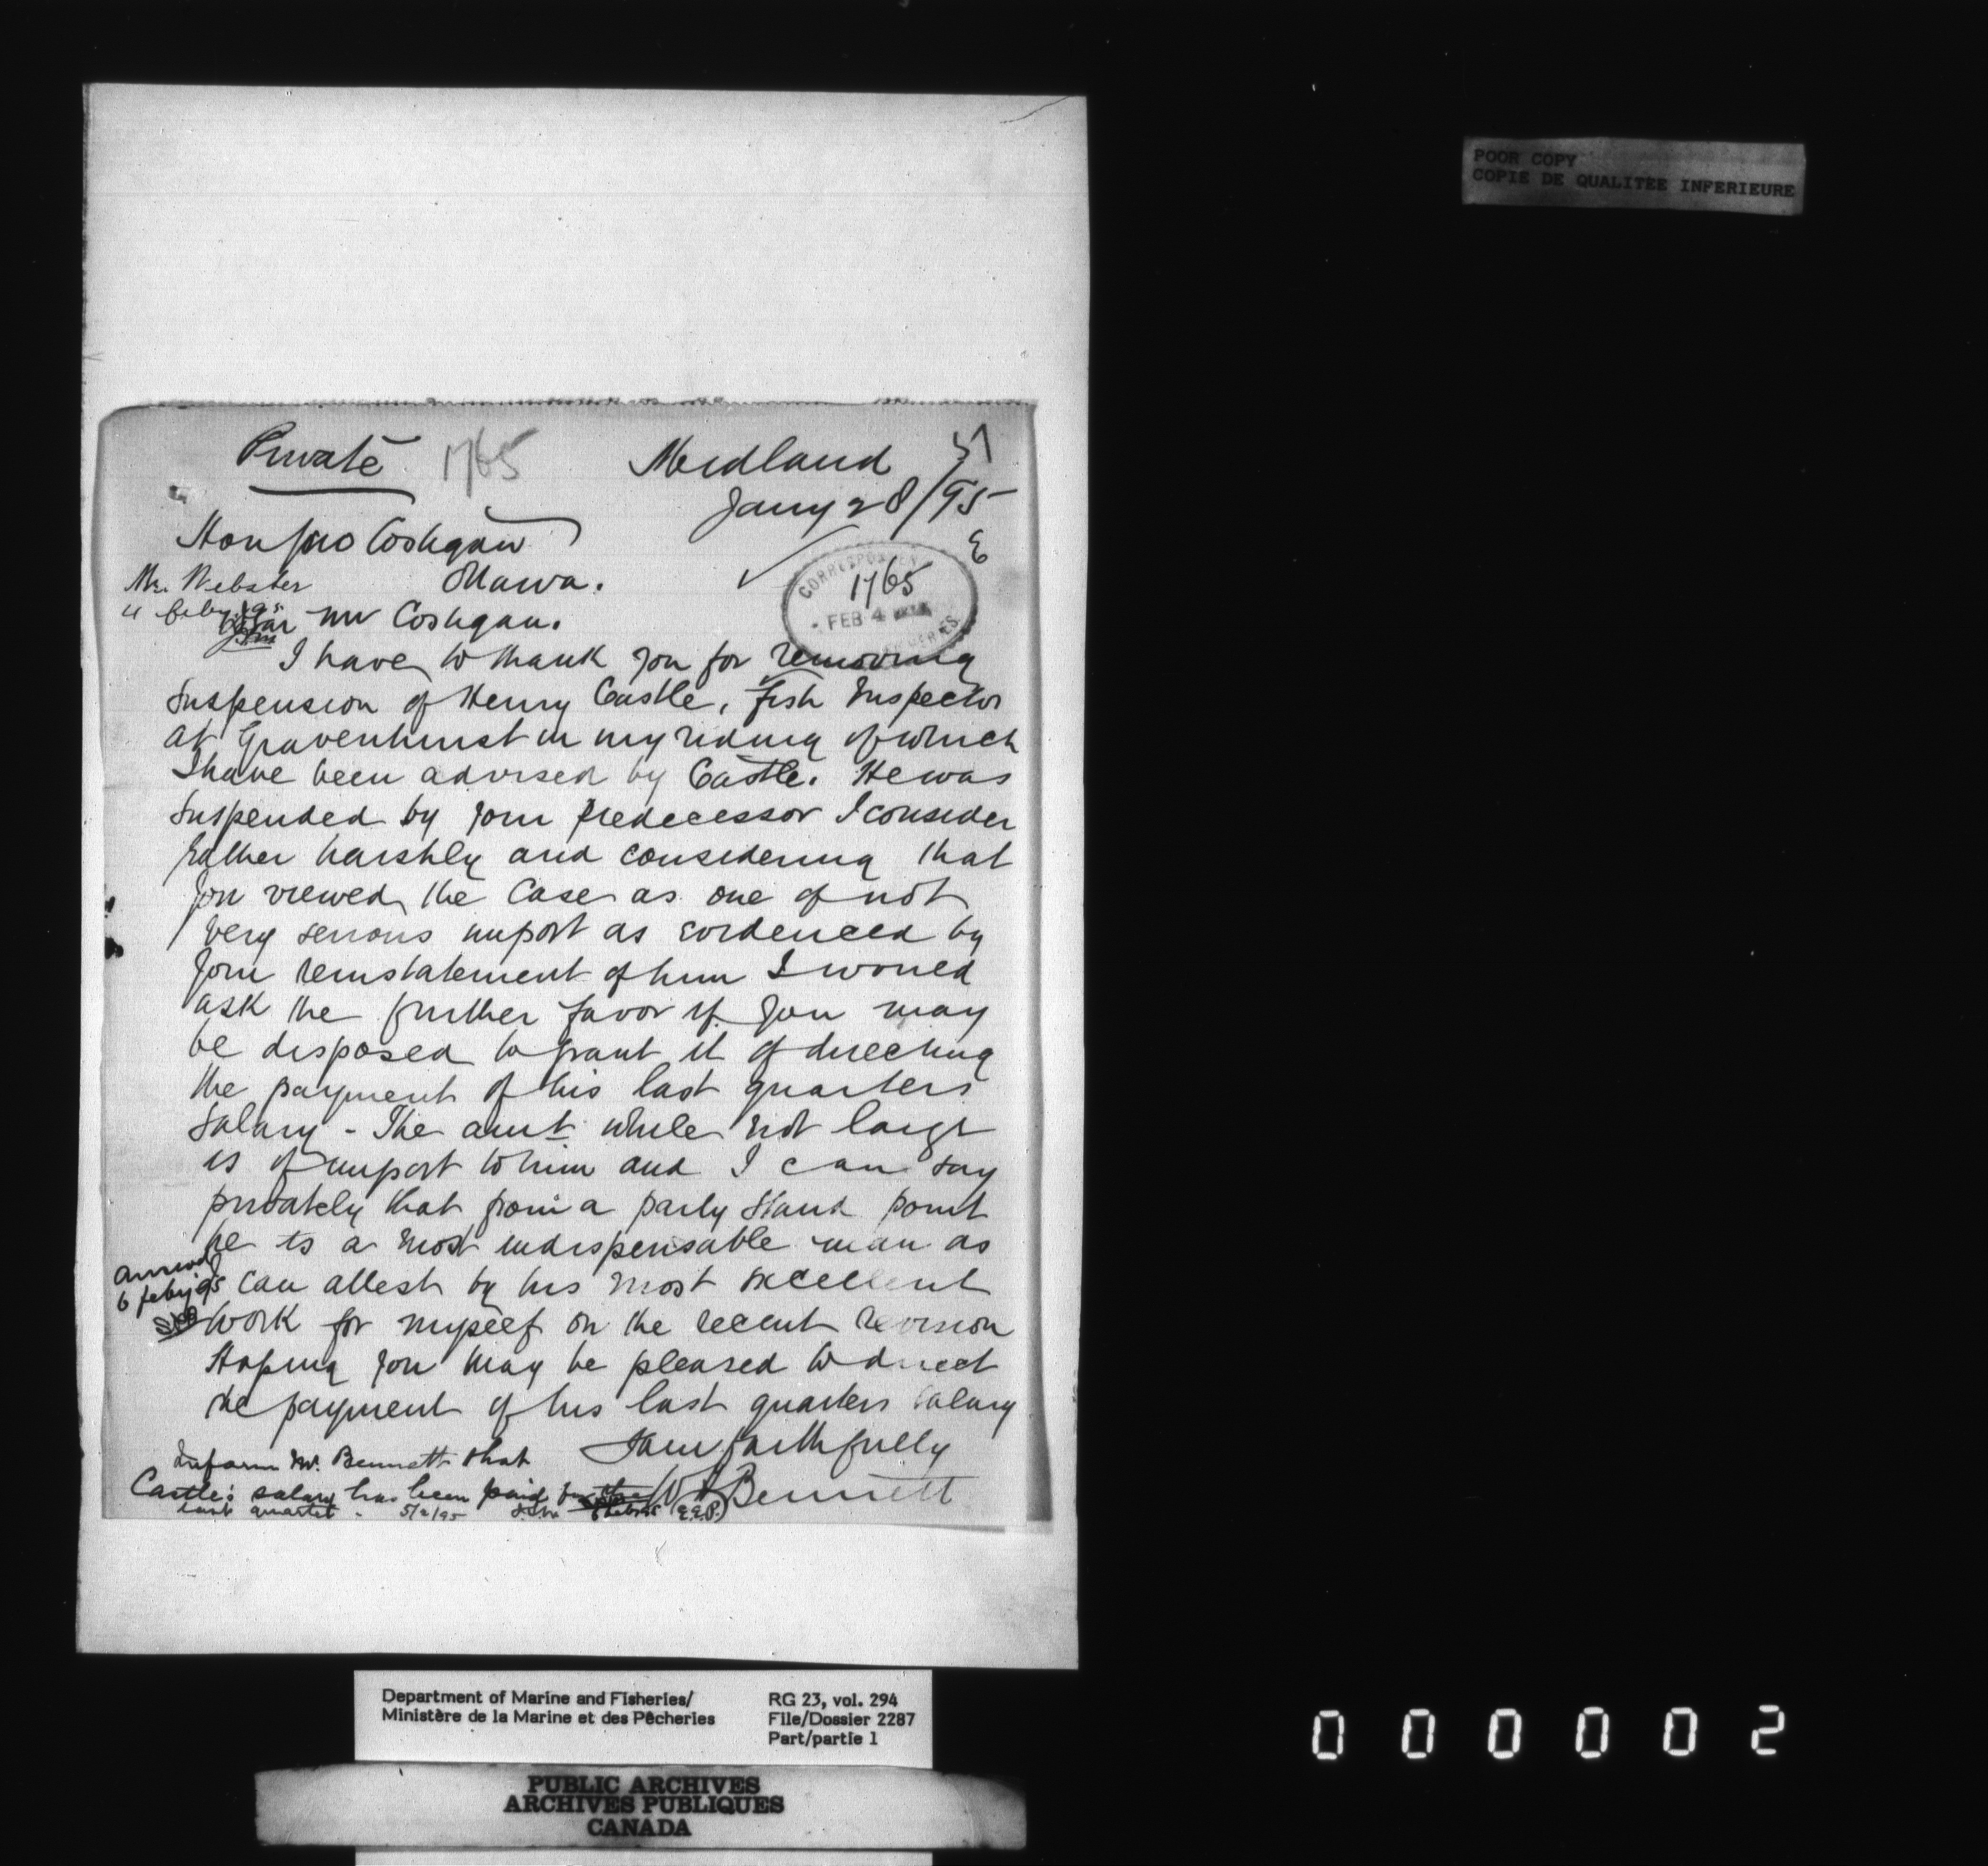 POOR COPY
COPIE DE QUALITEE INFERIEURE
Private 1765 Midland
Jany 28/95
Hon Jno Costigan
Ottawa.
CORRESPONDENCE
1765
FEB 4
FISHERIES
Mr. Webster
4 feby 95
Dear Mr Costigan.
I have to thank you for removing
suspension of Henry Castle, Fish Inspector
at Gravenhurst in my riding of which
I have been advised by Castle. He was
suspended by your predecessor I consider
rather harshly and considering that
you viewed the case as one of not
very serious import as evidenced by
your reinstatement of him I would
ask the further favor if you may
be disposed to grant it of directing
the payment of his last quarters
salary - The amt while not large
is of import to him and I can say
privately that from a party stand point
he is a most indispensable man as
I can attest by his most excellent
work for myself on the recent revision
Hoping you may be pleased to direct
the payment of his last quarters salary
I am faithfully
W H Bennett
answd
6 feby 95
Inform Mr. Bennett that
Castle's salary has been paid for the
last quarter. 5/2/95 (E.E.P.)
Department of Marine and Fisheries/
Ministère de la Marine et des Pêcheries
RG 23, vol. 294
File/Dossier 2287
Part/partie 1
PUBLIC ARCHIVES
ARCHIVES PUBLIQUES
CANADA
000002